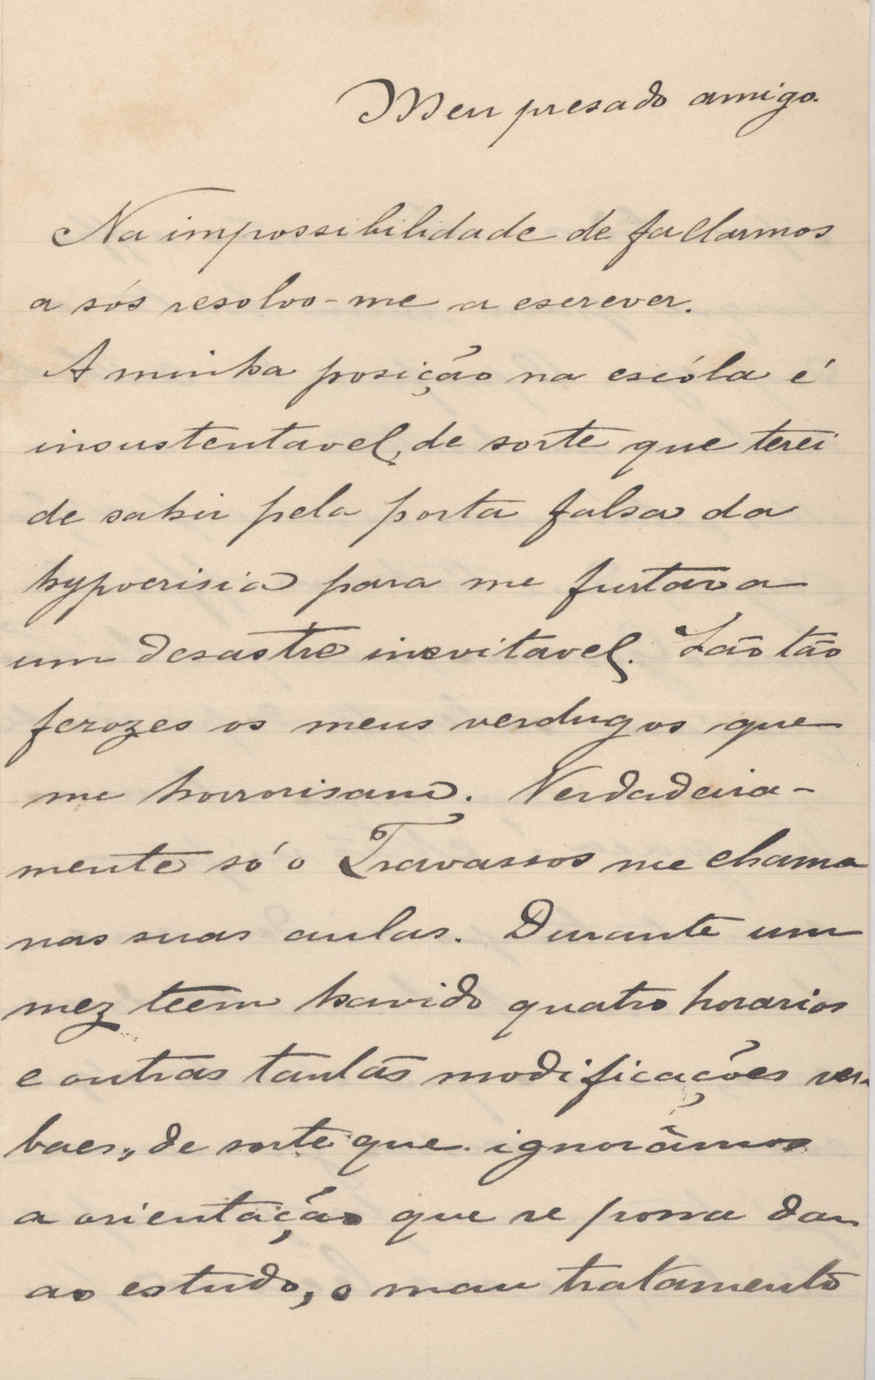 Meu presado amigo.
Na impossibilidade de fallarmos
a sós resolvo-me a escrever.
A minha posição na escóla é
insustentavel, de sorte que terei
de sahir pela porta falsa da
hypocrisia para me furtar a
um desastre inevitavel. São tão
ferozes os meus verdugos que
me horrorisam. Verdadeira-
mente só o Travassos me chama
nas suas aulas. Durante um
mez teem havido quatro horarios
e outras tantas modificações ver-
baes, de sorte que ignorâmos
a orientação que se possa dar
ao estudo, o mau tratamento